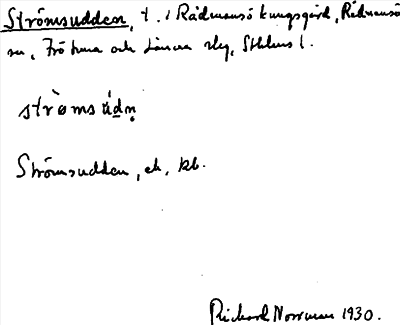 Strömsudden, t. i Rådmansö kungsgård, Rådmansö
sn, Frötuna och Länna slg, Sthlms l.
strömsúdn̥
Strömsudden, ek, kb.
Rickard Norrman 1930.